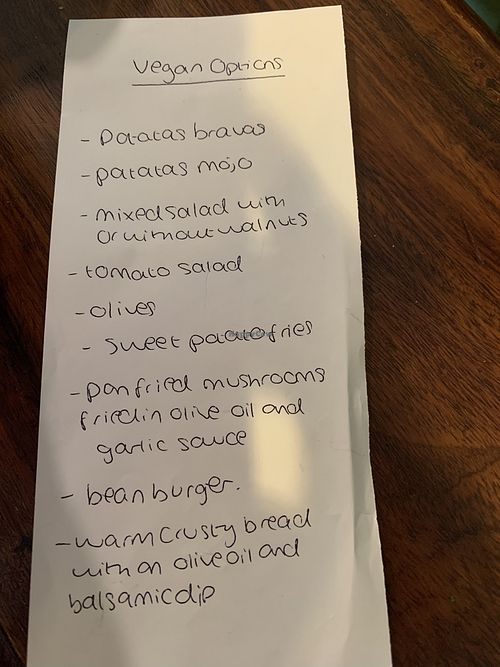 Vegan Options
- Patatas bravas
- patatas mojo
- mixed salad with
or without walnuts
- tomato salad
- olives
- sweet potato fries
- pan fried mushrooms
fried in olive oil and
garlic sauce
- bean burger.
- warm crusty bread
with an olive oil and
balsamic dip